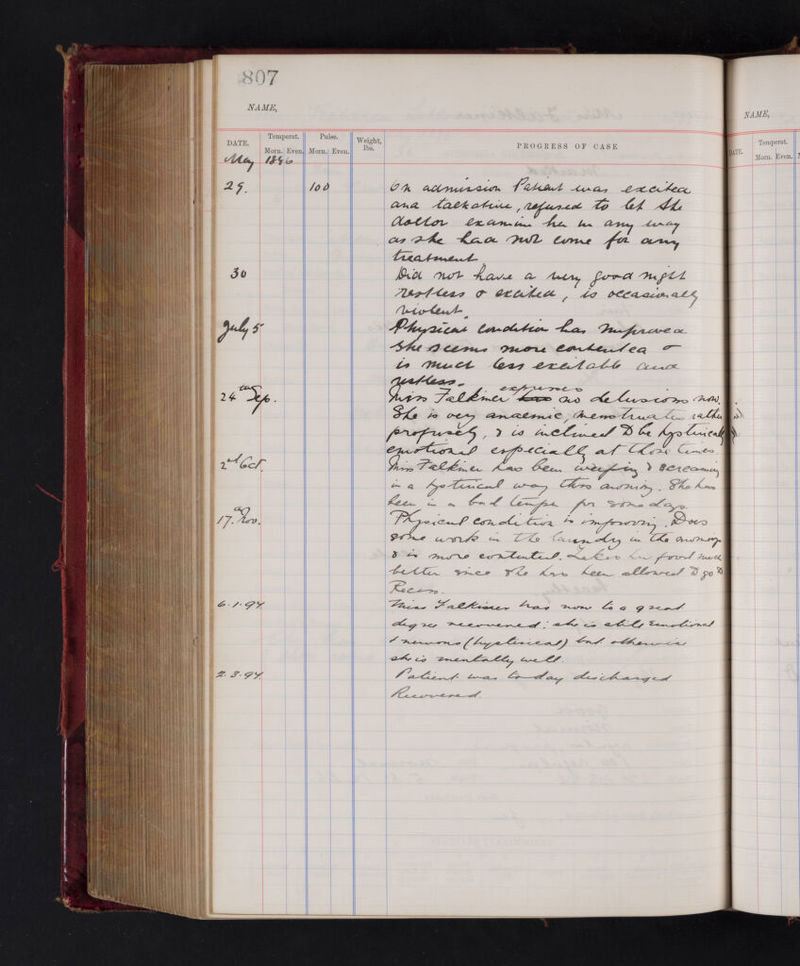 807
NAME,
DATE. Temperat. Pulse. Weight, lbs. PROGRESS OF CASE
Morn. Even. Morn. Even.
May
29. 100 On admission Patient was excited
and talkative, refused to let the
doctor examine her in any way
as she had not come for any
treatment
30 Did not have a very good night
restless & excited, is occasionally
violent.
July 5 Physical condition has improved
She seems more contented &
is much less excitable and
restless.
24th Sep. Miss Falkiner expresses no delusions now.
She is very anaemic, menstruates rather
profusely, & is inclined to be hysterically
emotional especially at those times.
2nd Oct. Miss Falkiner has been weeping & screaming
in a hysterical way this morning. She has
been in a bad temper for some days.
17. Nov. Physical condition is improving. Does
some work in the laundry in the mornings
& is more contented. Takes her food much
better since she has been allowed to go to
Recess.
6.1.94 Miss Falkiner has now to a great
degree recovered: she is still emotional
& nervous (hysterical) but otherwise
she is mentally well.
2.3.94. Patient was to-day discharged
Recovered.
NAME,
DATE. Temperat.
Morn. Even.